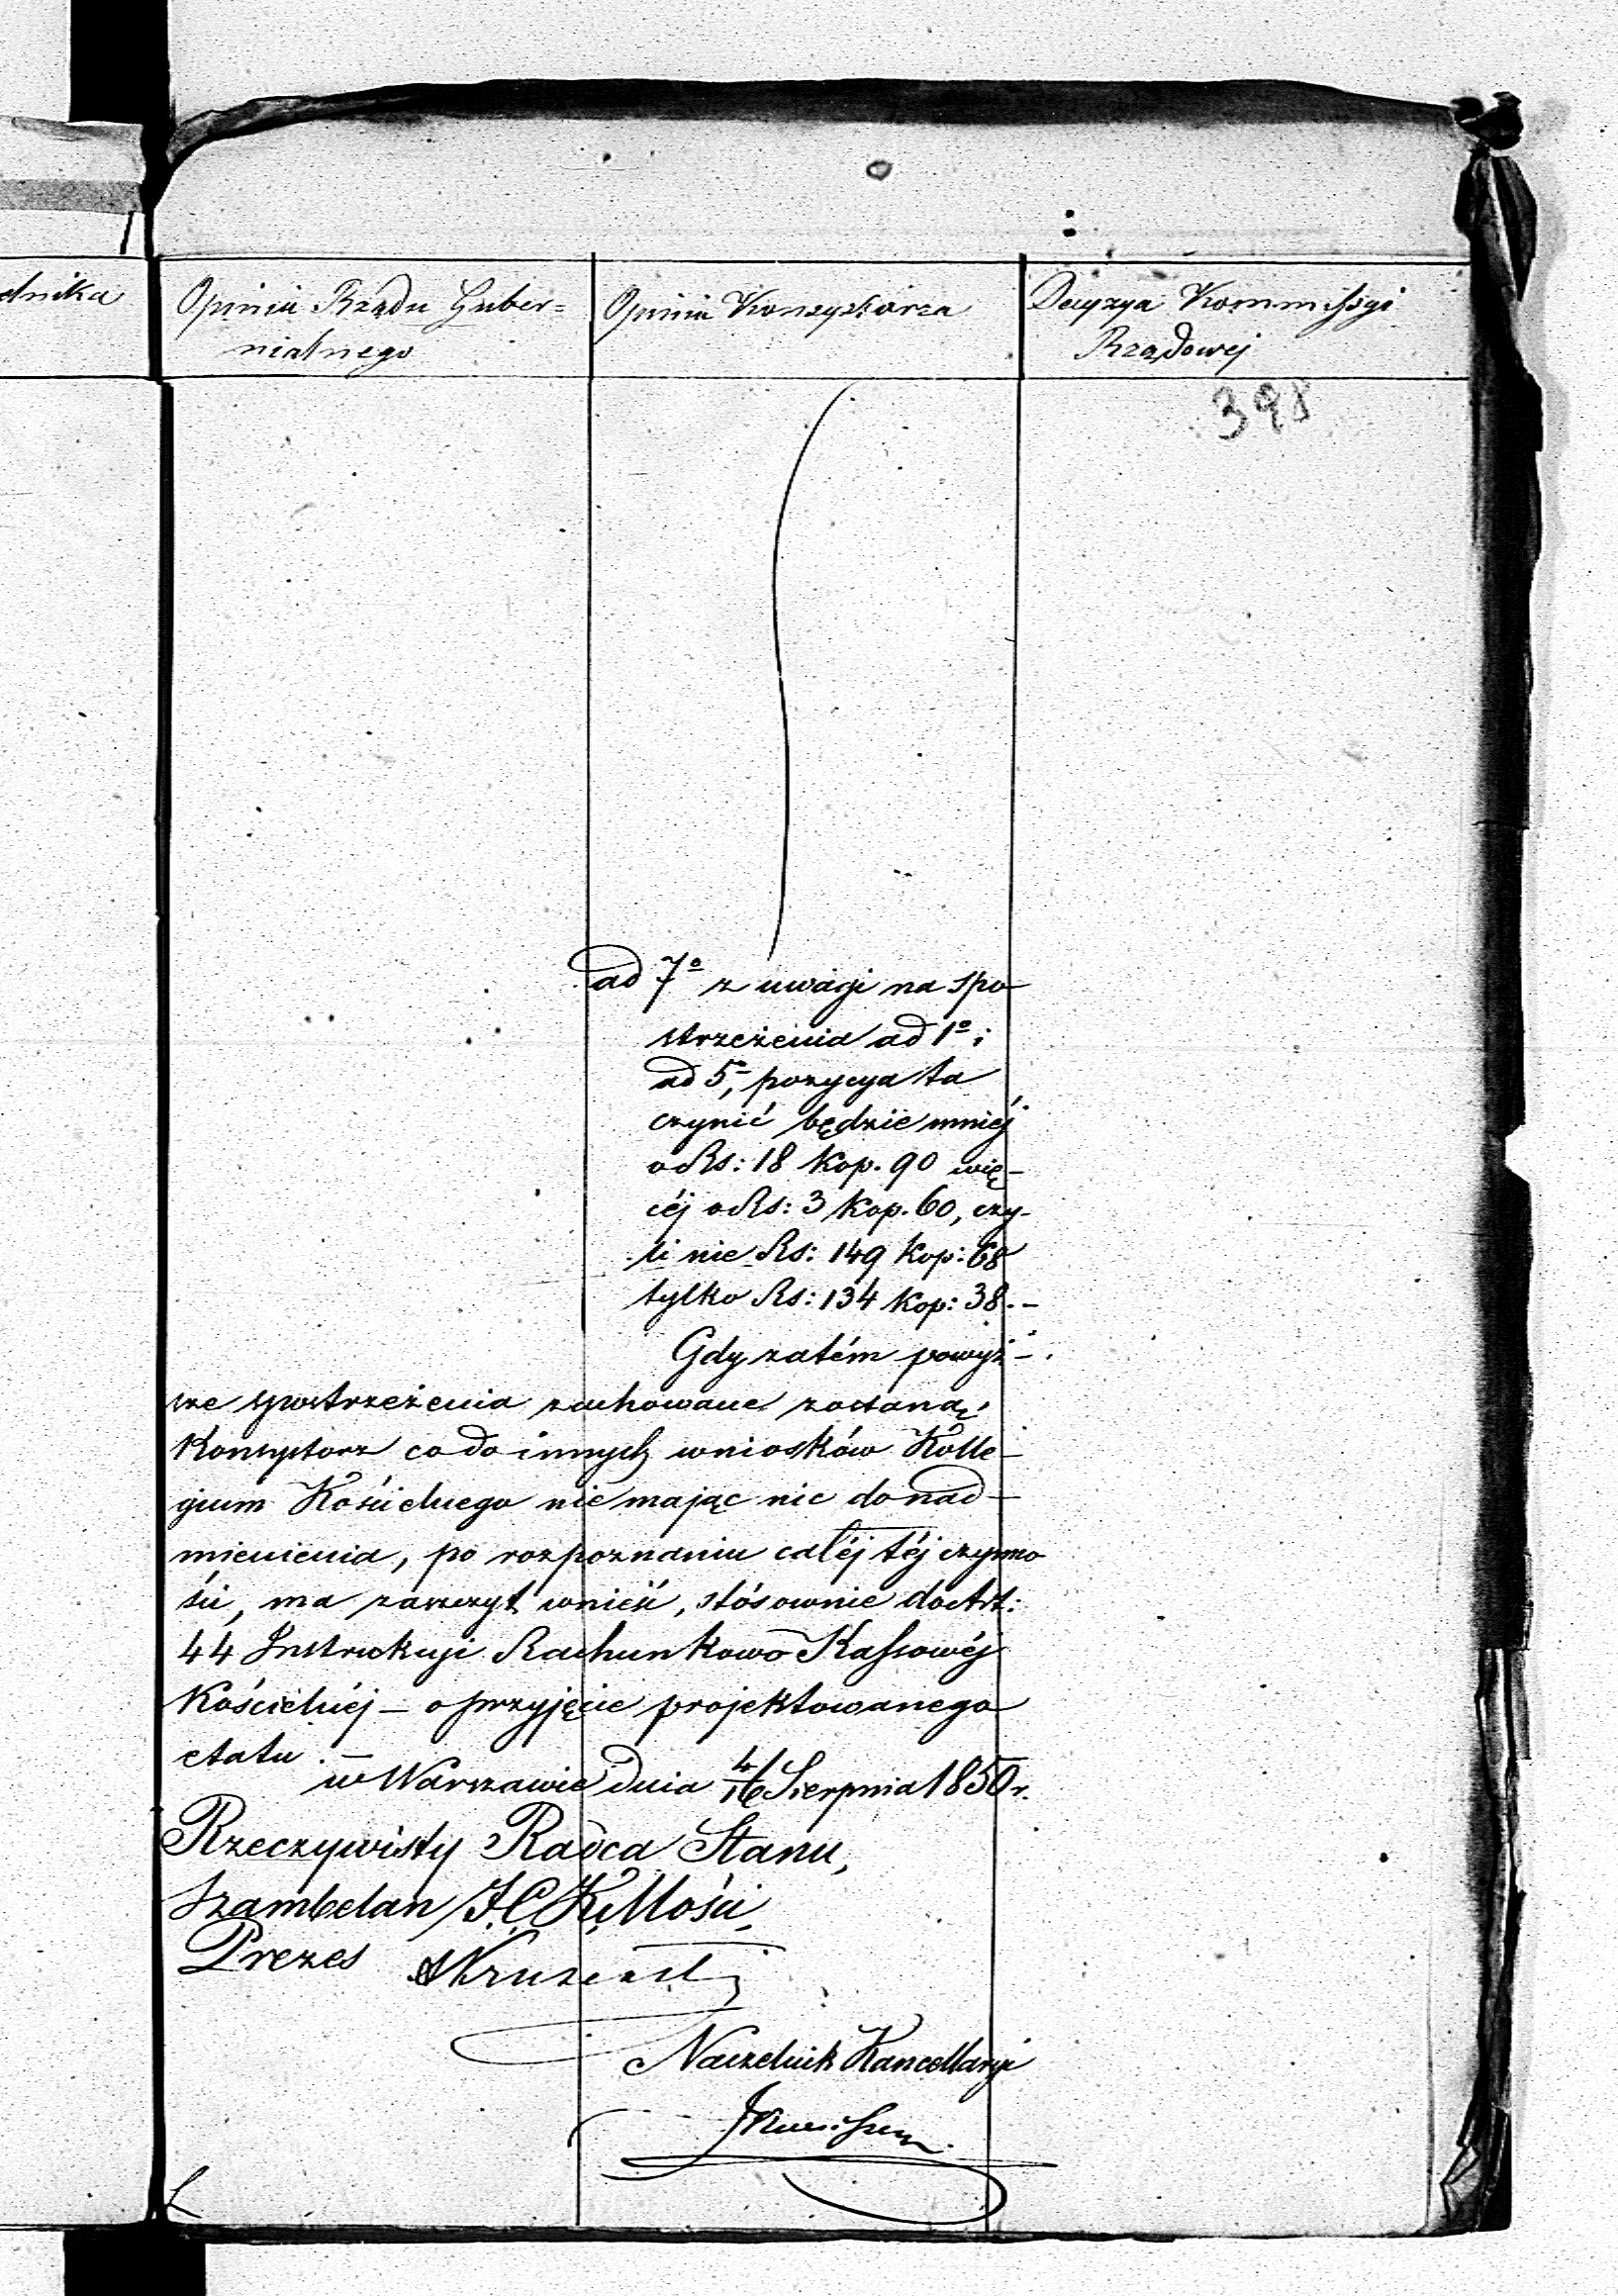 dnika
Opinia Rządu Guber=
nialnego
Opinia Konsystorza
Decyzya Kommissyi
Rządowej
398
ad 7º z uwagi na spo-
strzeżenia ad 1º i
ad 5º, pozycya ta
czynić będzie mniéj
o Rs: 18 kop. 90 wię-
céj o Rs: 3 kop. 60, czy-
li nie Rs: 149 kop: 68
tylko Rs: 134 kop: 38.-
Gdy zatém powyż-
sze spostrzeżenia zachowane zostaną,
Konsystorz co do innych wniosków Kolle-
gium Kościelnego nie mając nic do nad-
mienienia, po rozpoznaniu całéj téj czynno
ści, ma zaszczyt wnieść, stósownie do Art:
44 Instrukcyi Rachunkowo Kassowéj
Kościelnéj – o przyjęcie projektowanego
etatu. –
w Warszawie dnia 4/16 Sierpnia 1850 r.
Rzeczywisty Radca Stanu,
Szambelan J.C.K. Mości,
Prezes
Naczelnik Kancellaryi